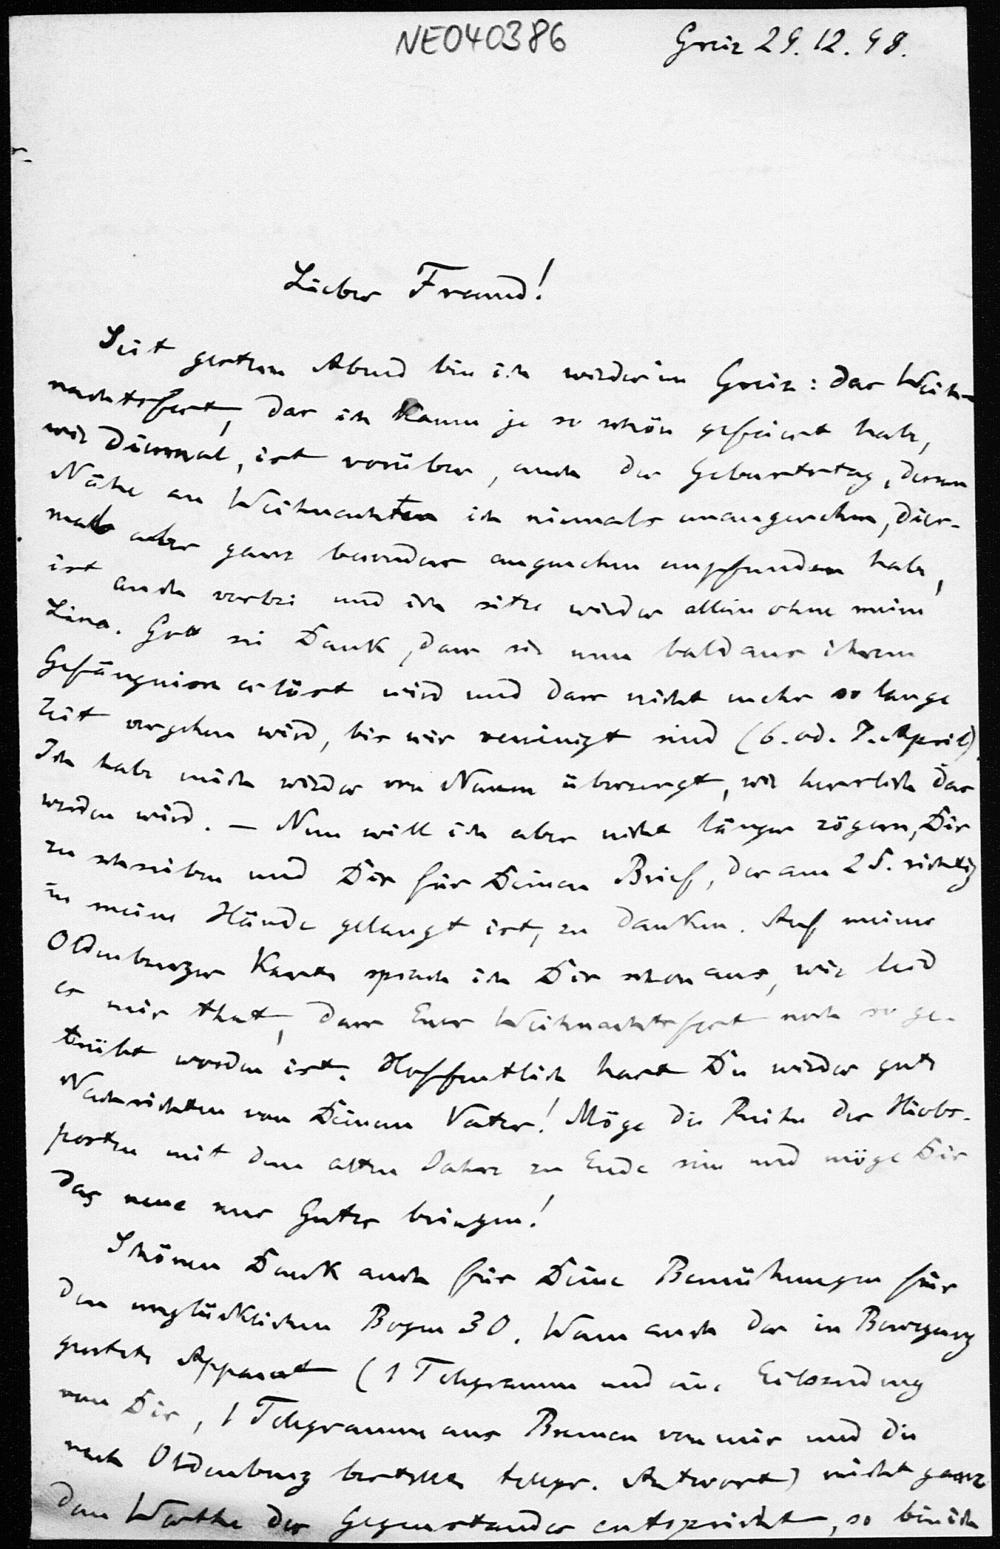 NE040386
Greiz 29.12.98.
Lieber Freund!
Seit gestern Abend bin ich wieder in Greiz: das Weih-
nachtsfest, das ich kaum je so schön gefeiert habe,
wie diesmal, ist vorüber, auch der Geburtstag, dessen
Nähe an Weihnachten ich niemals unangenehm, dies-
mals aber ganz besonders angenehm empfunden habe,
ist auch vorbei und ich sitze wieder allein ohne meine
Lina. Gott sei Dank, dass sie nun bald aus ihrem
Gefängnisse erlöst wird und dass nicht mehr so lange
Zeit vergehen wird, bis wir vereinigt sind (6. od. 7. April).
Ich habe mich wieder von Neuem überzeugt, wie herrlich das
werden wird. – Nun will ich aber nicht länger zögern, Dir
zu schreiben und Dir für Deinen Brief, der am 25. richtig
in meine Hände gelangt ist, zu danken. Auf meiner
Oldenburger Karte sprach ich Dir schon aus, wie leid
es mir that, dass Euer Weihnachtsfest noch so ge-
trübt worden ist. Hoffentlich hast Du wieder gute
Nachrichten von Deinem Vater! Möge die Reihe der Hiobs-
posten mit dem alten Jahre zu Ende sein und möge Dir
das neue nur Gutes bringen!
Schönen Dank auch für Deine Bemühungen für
den unglücklichen Bogen 30. Wenn auch der in Bewegung
gesetzte Apparat (1 Telegramm und eine Eilsendung
von Dir, 1 Telegramm aus Bremen von mir und die
nach Oldenburg bestellte telegr. Antwort) nicht ganz
dem Werthe des Gegenstandes entspricht, so bin ich